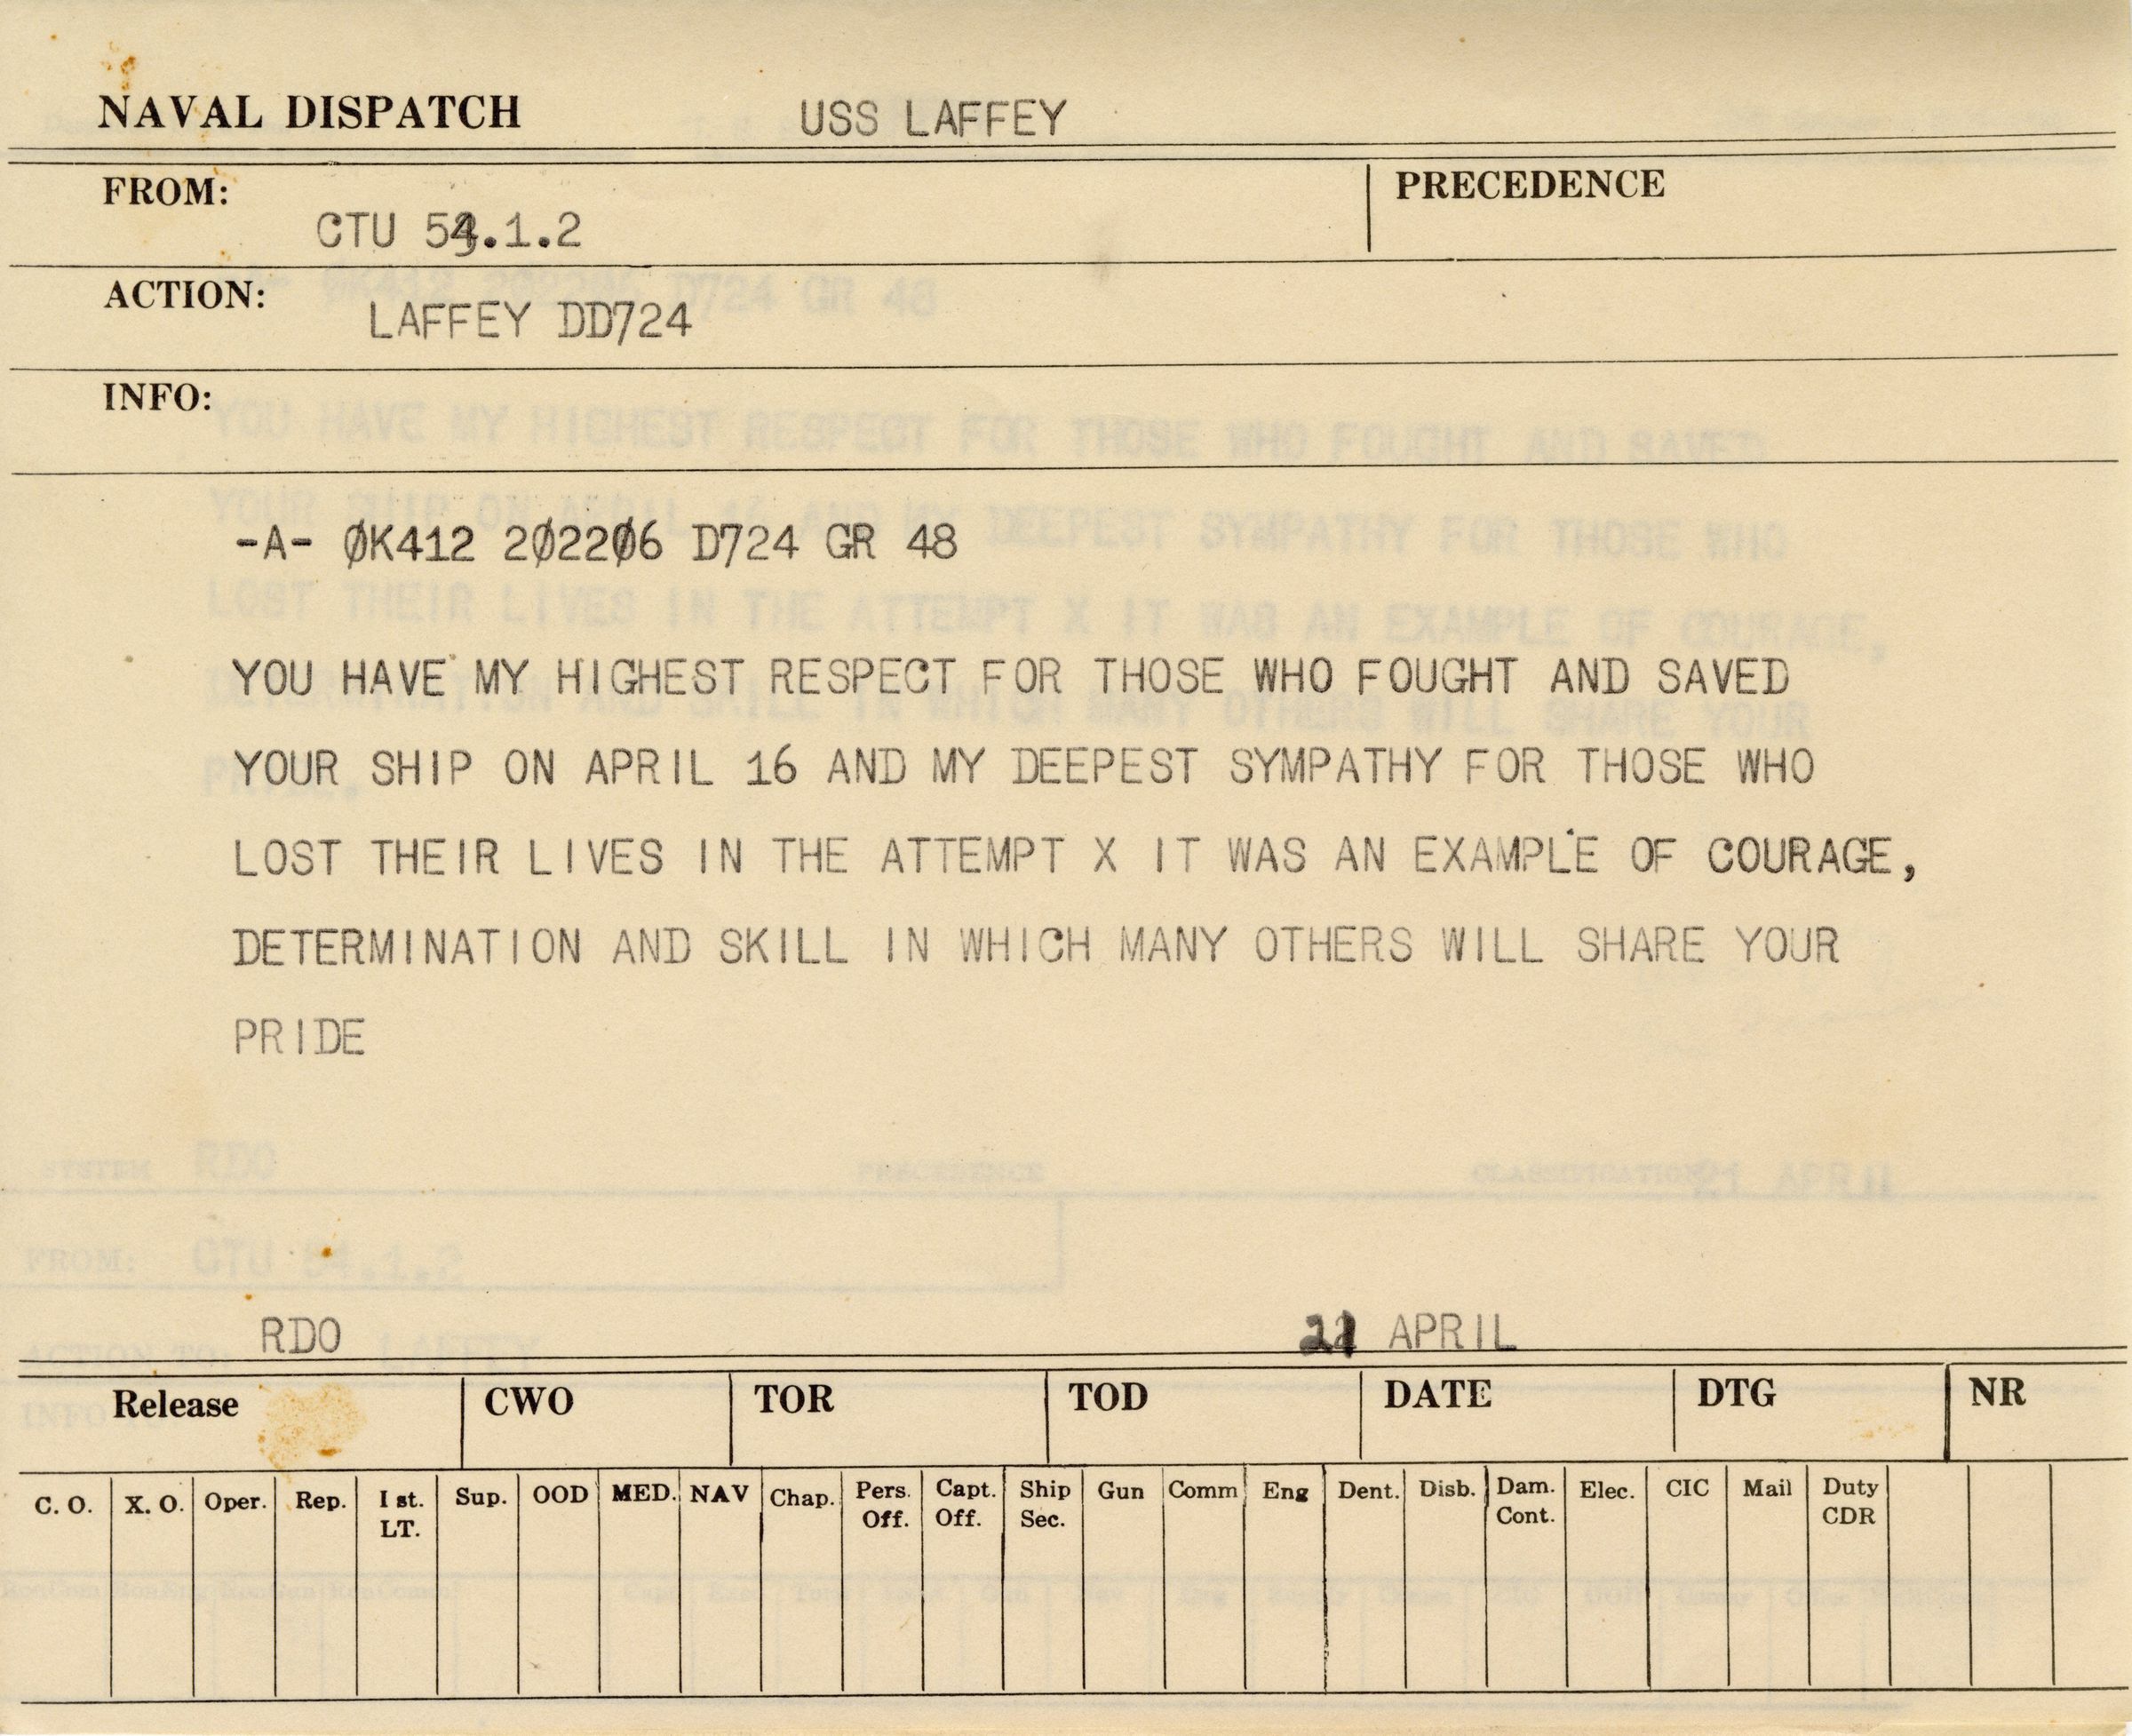 NAVAL DISPATCH USS LAFFEY
FROM: PRECEDENCE
CTU 54.1.2
ACTION:
LAFFEY DD724
INFO:
-A- ØK412 2Ø22Ø6 D724 GR 48
YOU HAVE MY HIGHEST RESPECT FOR THOSE WHO FOUGHT AND SAVED
YOUR SHIP ON APRIL 16 AND MY DEEPEST SYMPATHY FOR THOSE WHO
LOST THEIR LIVES IN THE ATTEMPT X IT WAS AN EXAMPLE OF COURAGE,
DETERMINATION AND SKILL IN WHICH MANY OTHERS WILL SHARE YOUR
PRIDE
RDO 21 APRIL
Release CWO TOR TOD DATE DTG NR
C. O. X. O. Oper. Rep. I st. Sup. OOD MED. NAV Chap. Pers. Capt. Ship Gun Comm Eng Dent. Disb. Dam. Elec. CIC Mail Duty
LT. Off. Off. Sec. Cont. CDR